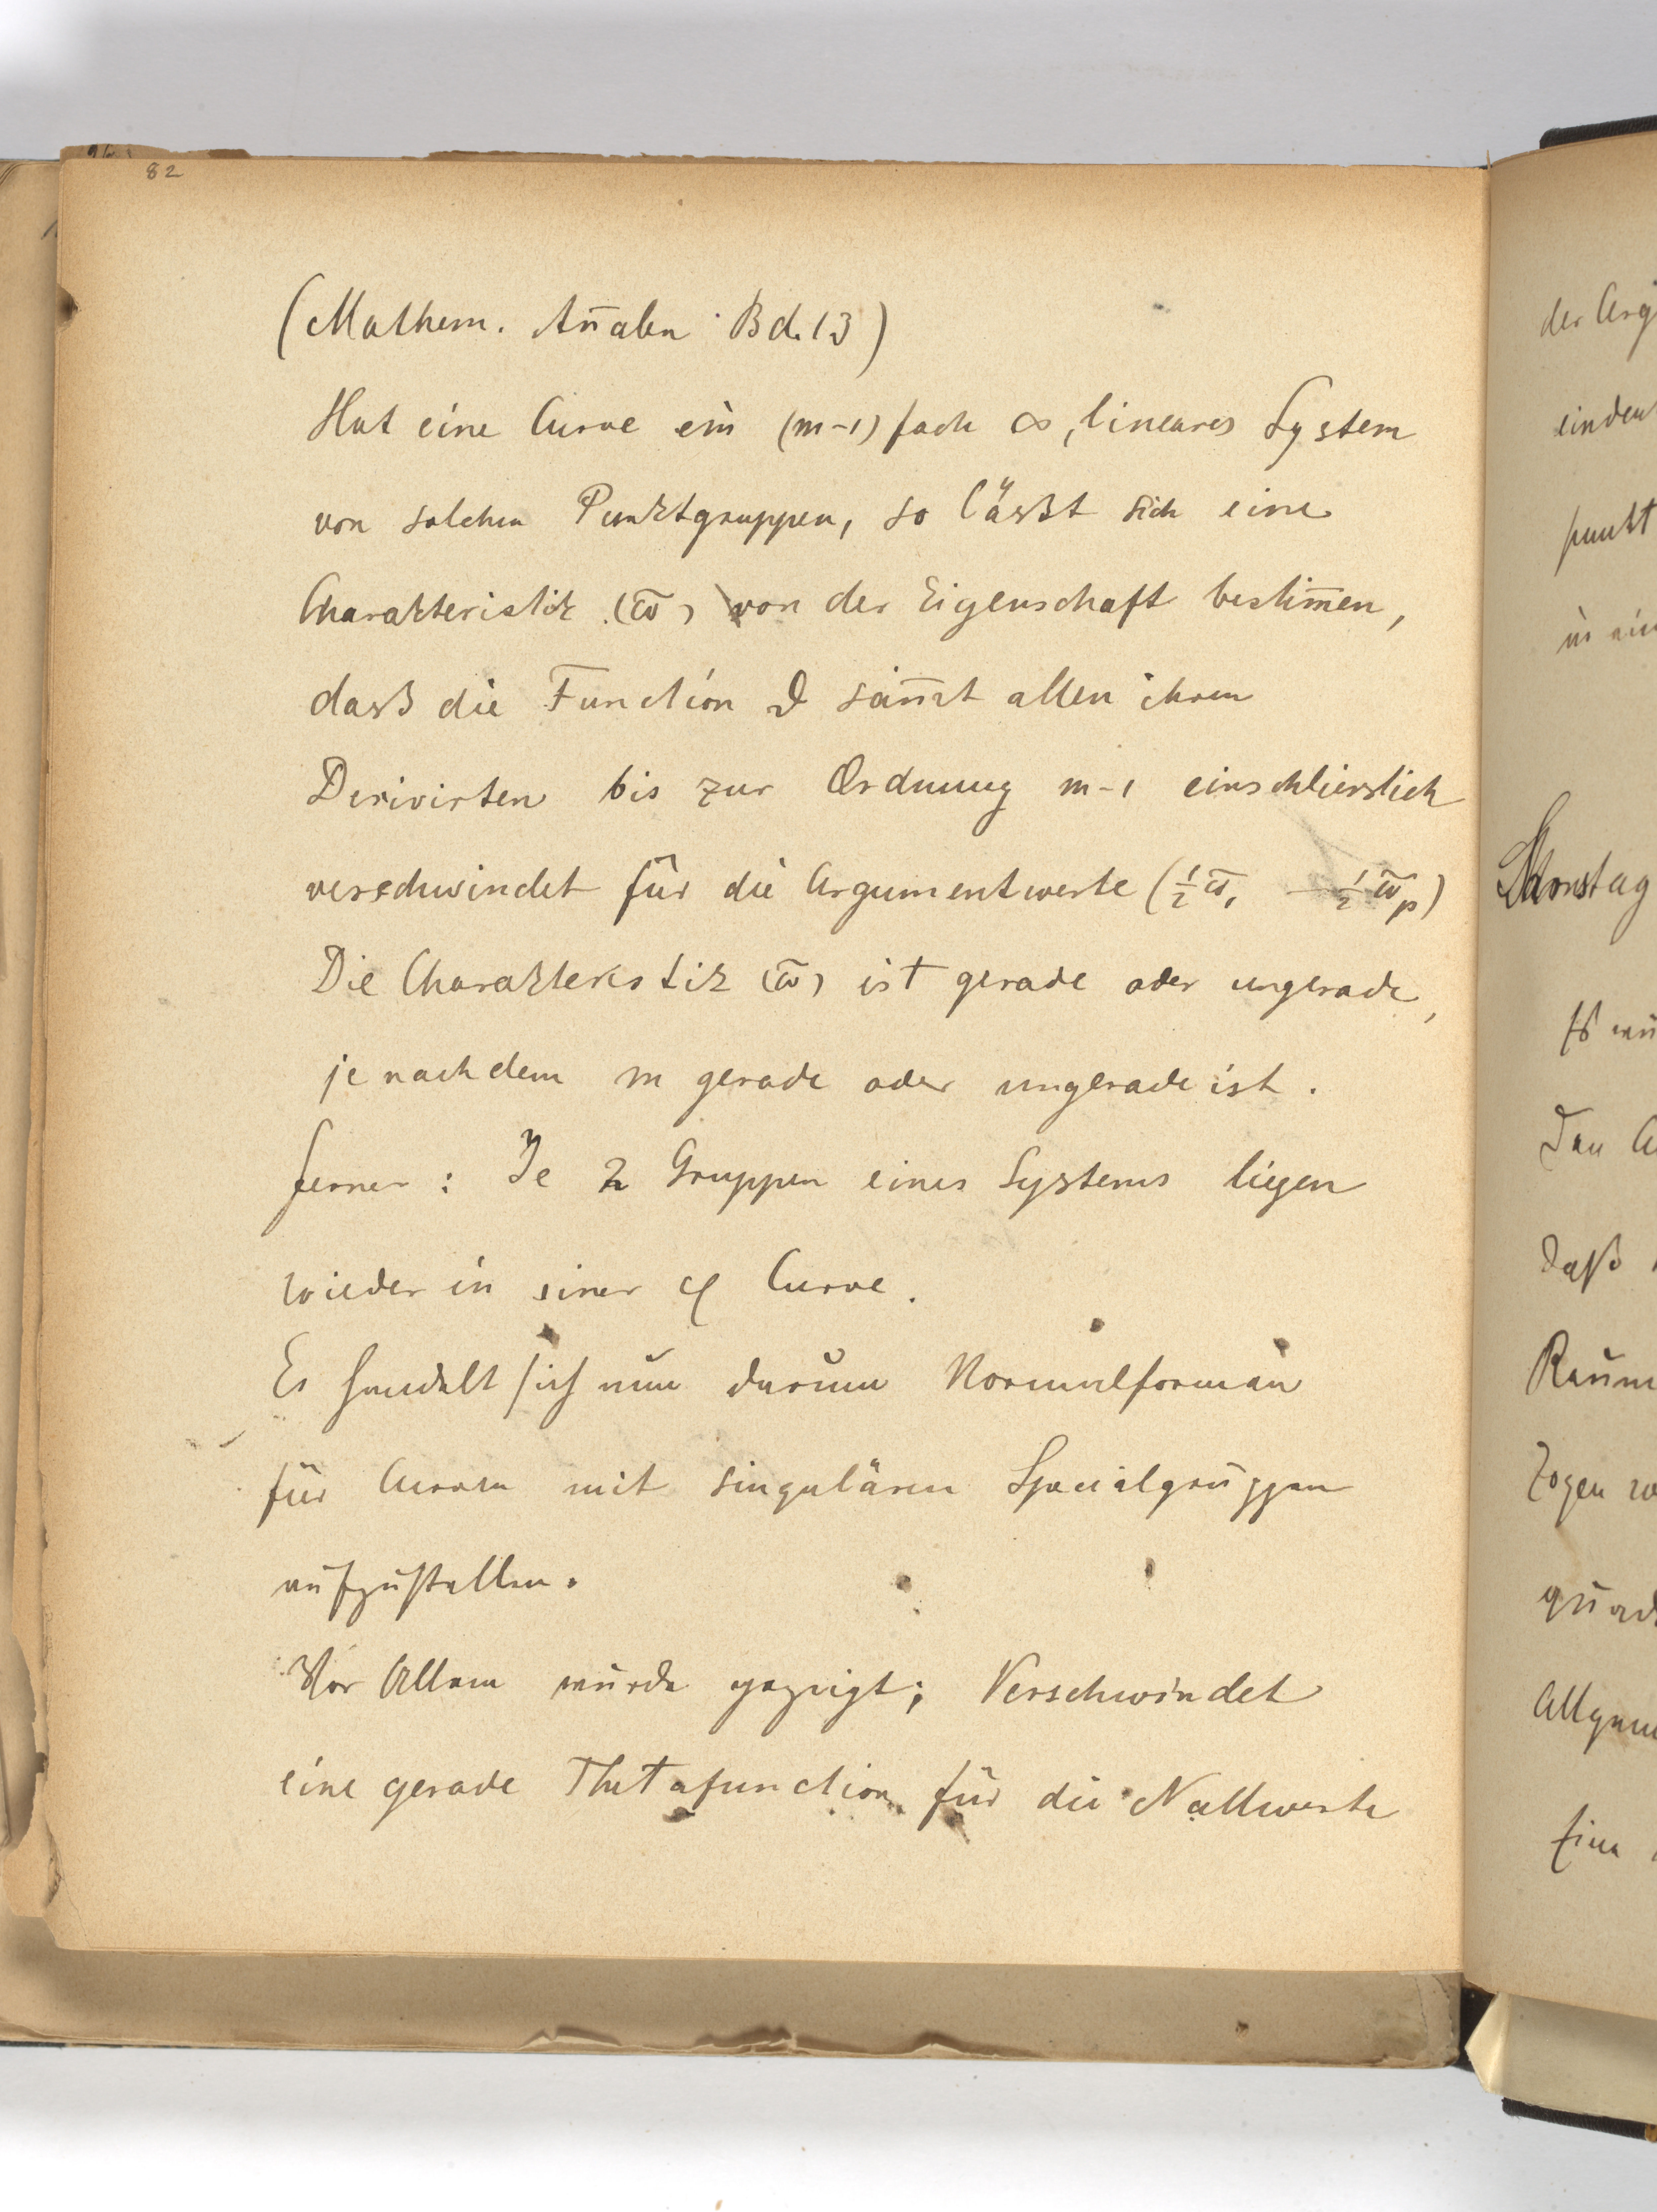 82
(Mathem. An̄alen Bd. 13)
Hat eine Curve ein (m-1) fach ∞, lineares System
von solchen Punktgruppen, so lässt sich eine
Charakteristik (ω̄) von der Eigenschaft bestim̄en,
dass die Function ϑ sam̄t allen ihren
Derivirten bis zur Ordnung m-1 einschliesslich
verschwindet für die Argumentwerte (½ω̄₁ — ½ω̄ₚ)
Die Charakteristik (ω̄) ist gerade oder ungerade,
je nachdem m gerade oder ungerade ist.
ferner: Je 2 Gruppen eines Systems liegen
wieder in einer φ Curve.
Es handelt sich nun darum Normalformen
für Curven mit singulären Specialgruppen
aufzustellen.
Vor Allem wurde gezeigt; Verschwindet
eine gerade Thetafunction für die Nullwerte
der Arg
eindeu
punkt
in ein
Samstag
Es wu
Den A
daß
Raum
zogen w
quad
Allgem
Eine